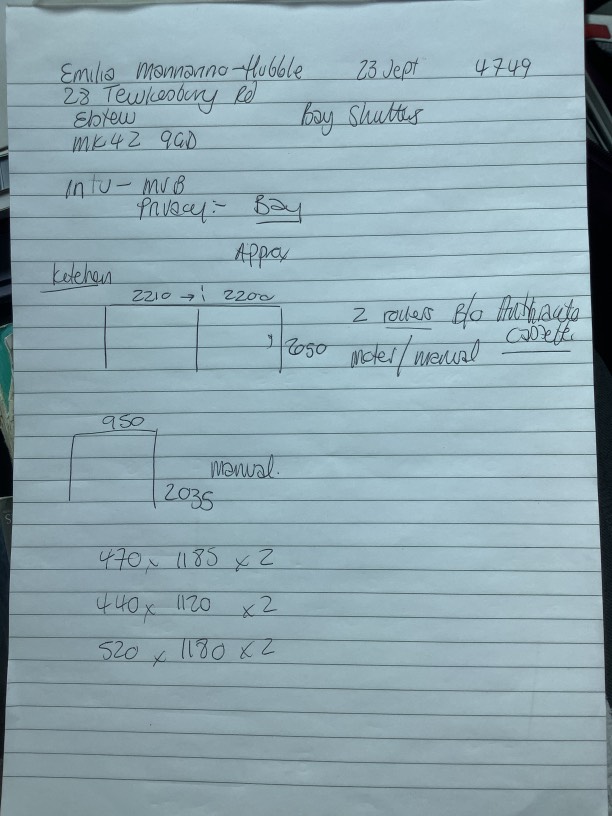 Emilia Mannanno-Hubble 23 Sept 4749
23 Tewkesbury Rd
Elstew Bay Shutters
MK42 9GD
Intu - MVB
Privacy:- Bay
Approx
Kitchen
2210 → 2200
2 rollers B/O Anthracite
2050 motor/manual Cassette
950
manual.
2035
470 x 1185 x 2
440 x 1120 x 2
520 x 1180 x 2